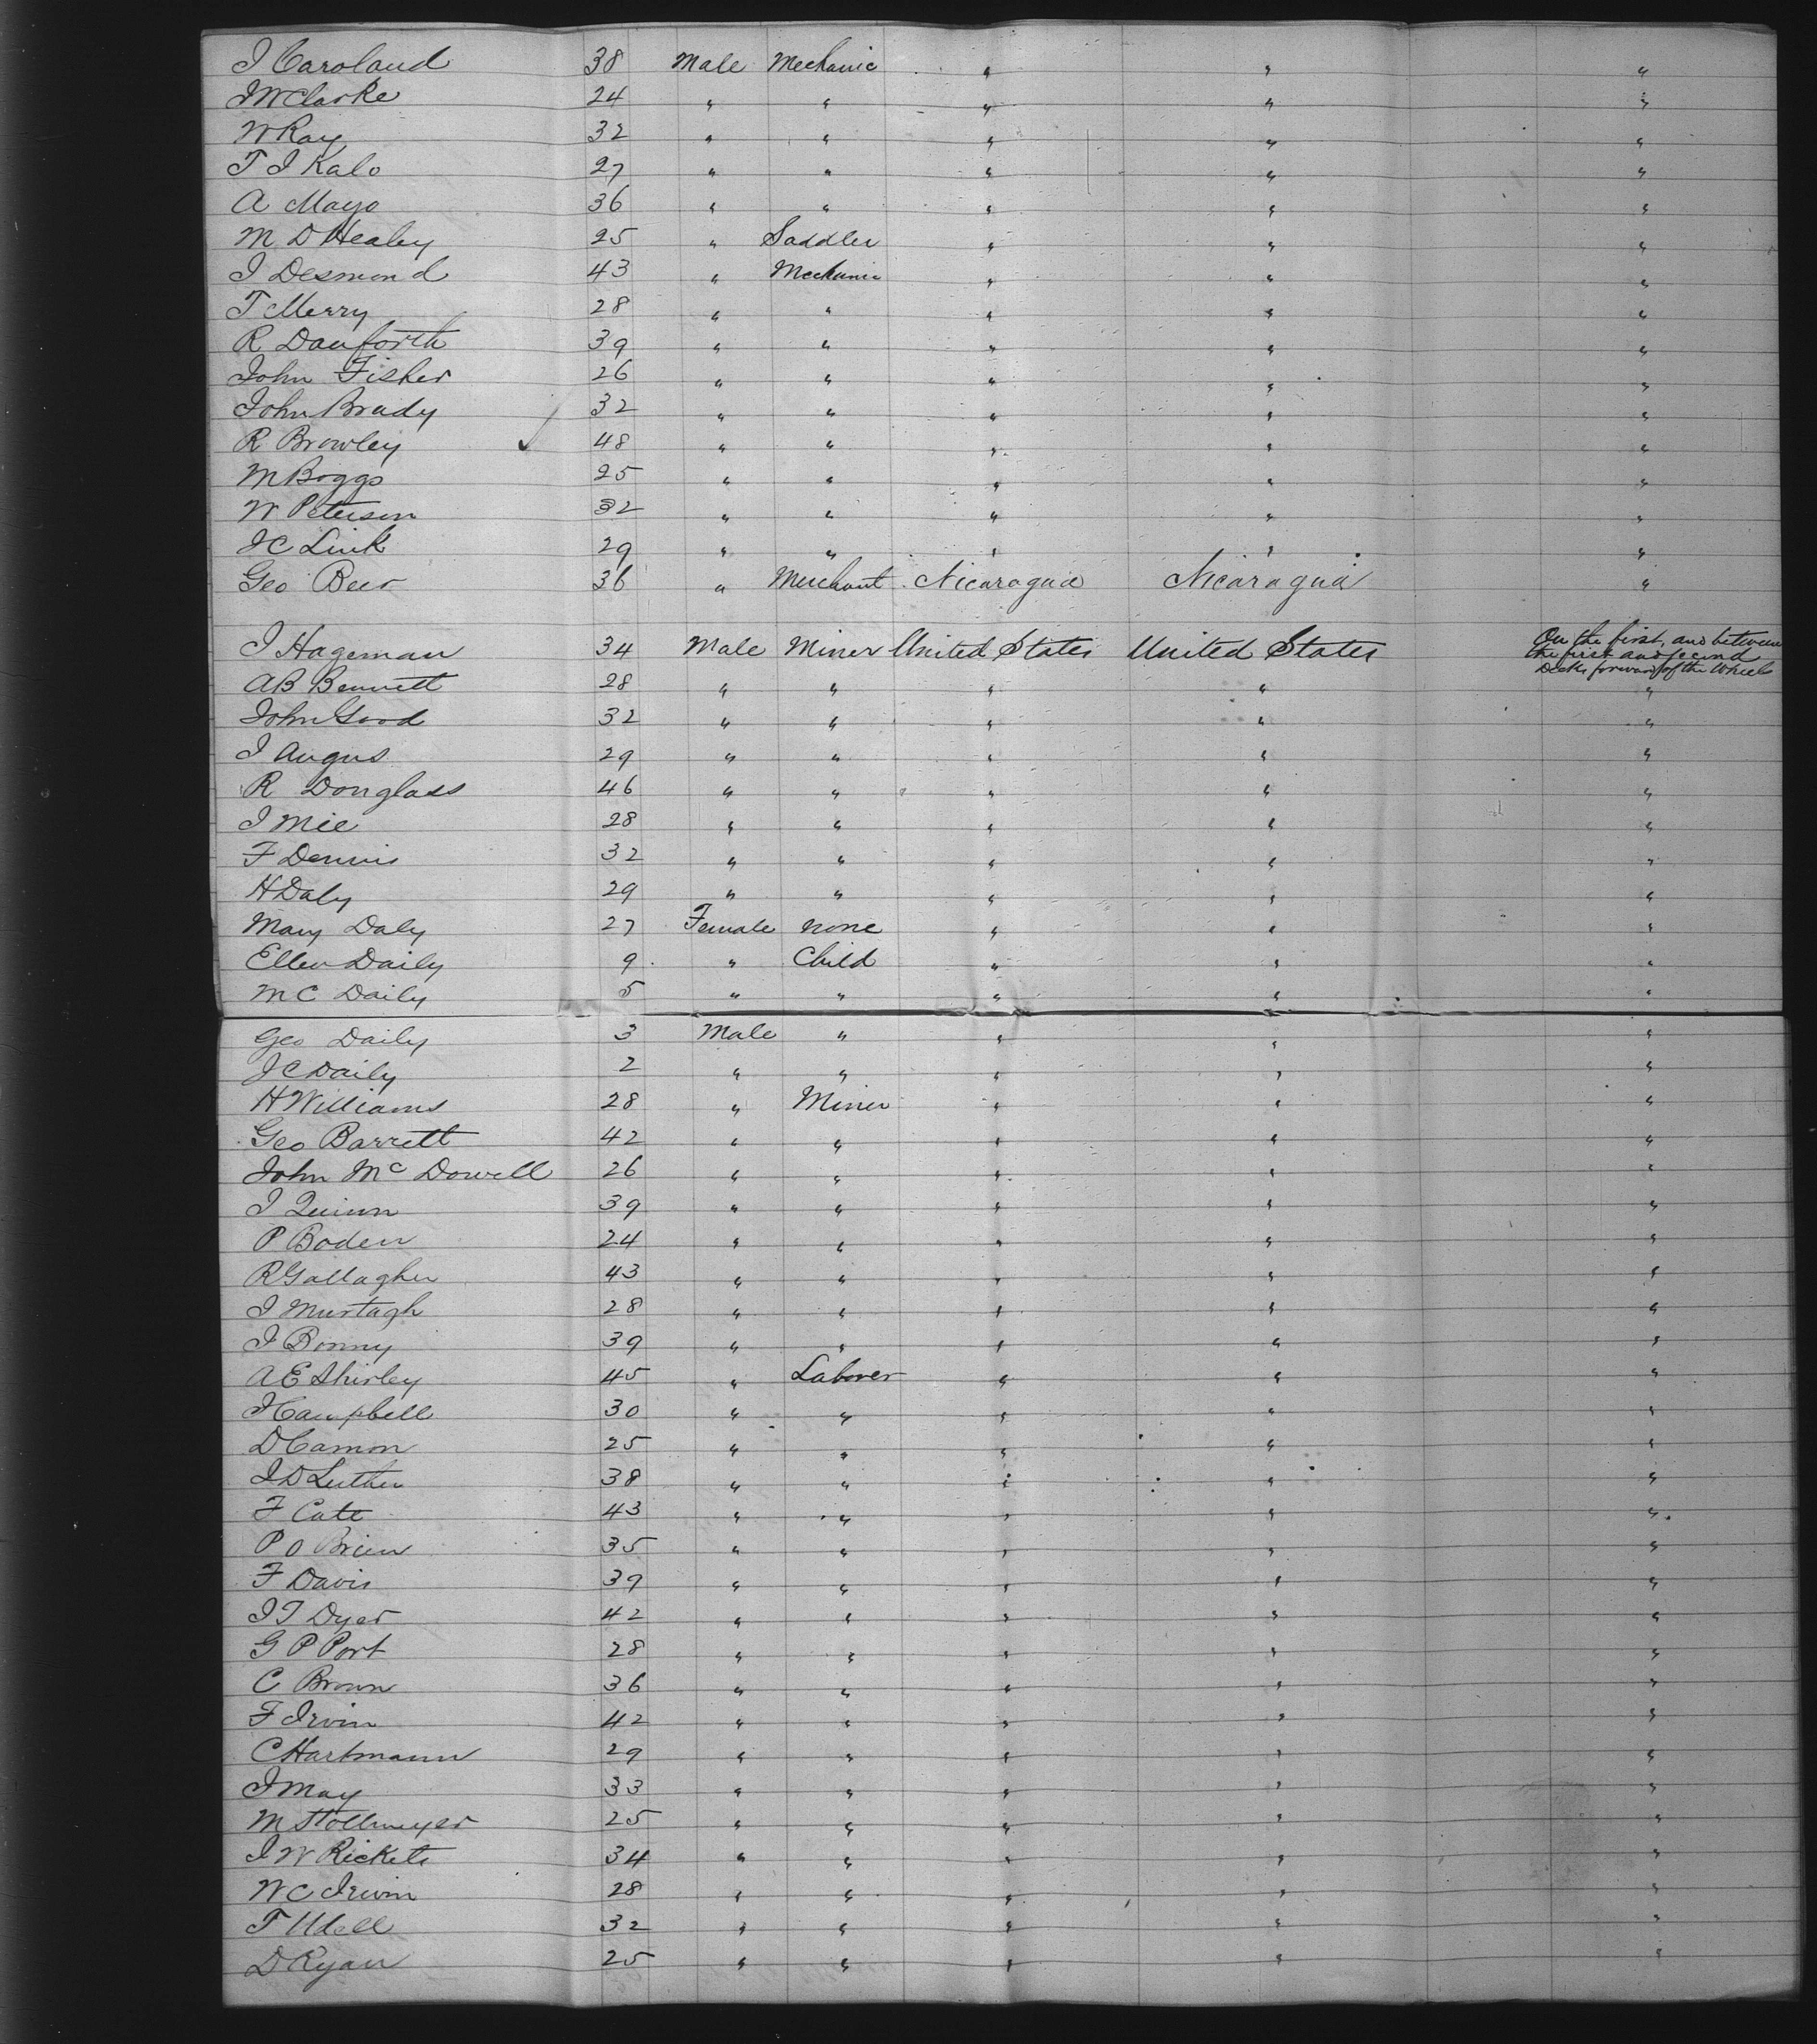 J Caroland 38 Male Mechanic " " "
J W Clarke 24 " " " " "
W Ray 32 " " " " "
T J Kalo 27 " " " " "
A Mayo 36 " " " " "
M D Healey 25 " Saddler " " "
J Desmond 43 " Mechanic " " "
T Merry 28 " " " " "
R Danforth 39 " " " " "
John Fisher 26 " " " " "
John Brady 32 " " " " "
R Browley ✓ 48 " " " " "
M Boggs 25 " " " " "
W Peterson 32 " " " " "
J C Link 29 " " " " "
Geo Beer 36 " Merchant Nicaragua Nicaragua "
J Hageman 34 Male Miner United States United States On the first, and between the first and second Decks forward of the Wheels
A B Bennett 28 " " " " "
John Good 32 " " " " "
J Angus 29 " " " " "
R Douglass 46 " " " " "
J Mie 28 " " " " "
F Dennis 32 " " " " "
H Daly 29 " " " " "
Mary Daly 27 Female none " " "
Ellen Daily 9 " Child " " "
M C Daily 5 " " " " "
Geo Daily 3 Male " " " "
J C Daily 2 " " " " "
H Williams 28 " Miner " " "
Geo Barrett 42 " " " " "
John Mc Dowell 26 " " " " "
J Quinn 39 " " " " "
P Boden 24 " " " " "
R Gallagher 43 " " " " "
J Murtagh 28 " " " " "
J Bonny 39 " " " " "
A E Shirley 45 " Laborer " " "
J Campbell 30 " " " " "
D Camon 25 " " " " "
J D Luther 38 " " " " "
F Cate 43 " " " " "
P O Brien 35 " " " " "
F Davis 39 " " " " "
J T Dyer 42 " " " " "
G P Port 28 " " " " "
C Brown 36 " " " " "
F Irvin 42 " " " " "
C Hartmann 29 " " " " "
J May 33 " " " " "
M Stollmeyer 25 " " " " "
J W Rickets 34 " " " " "
W C Irwin 28 " " " " "
T Udell 32 " " " " "
D Ryan 25 " " " " "